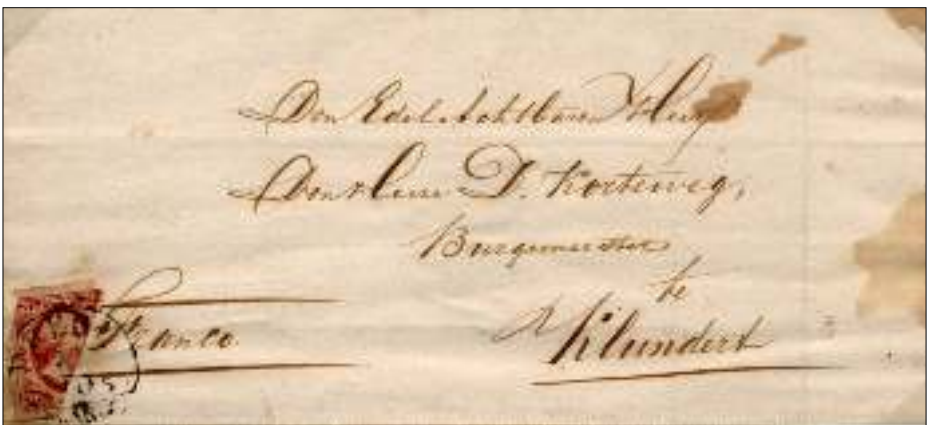 Den Edel Achtbaren Heer
Den Heer D. Korteweg,
Burgemeester
te
Klundert
Franco